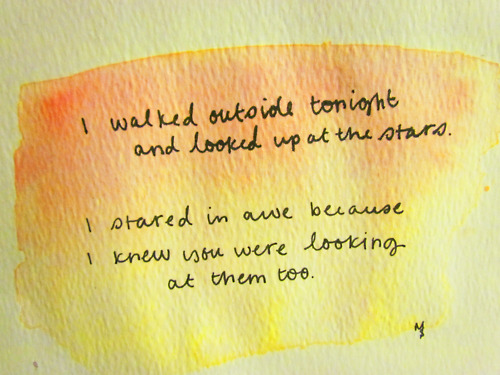 I walked outside tonight
and looked up at the stars.
I stared in awe because
I knew you were looking
at them too.